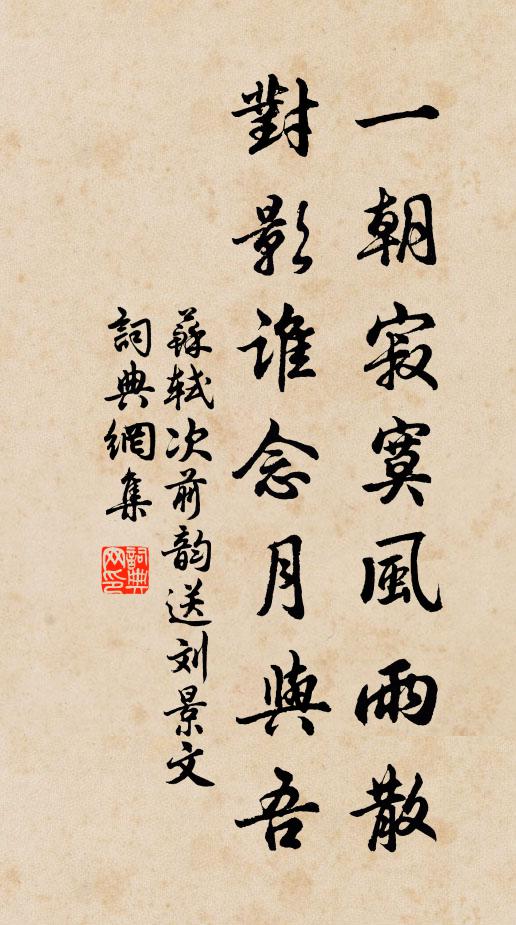 一朝寂寞風雨散
對影誰念月與吾
蘇軾次前韵送刘景文
詞典網集
詞典網印